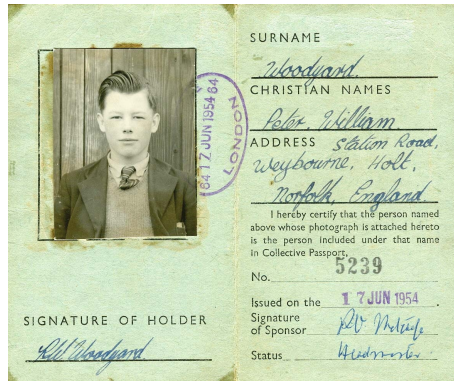 84 17 JUN 1954 84
LONDON
SIGNATURE OF HOLDER
P.W. Woodyard.
SURNAME
Woodyard.
CHRISTIAN NAMES
Peter, William
ADDRESS Station Road,
Weybourne, Holt,
Norfolk, England.
I hereby certify that the person named
above whose photograph is attached hereto
is the person included under that name
in Collective Passport,
No. 5239
Issued on the 17 JUN 1954 .
Signature
of Sponsor
Status Headmaster